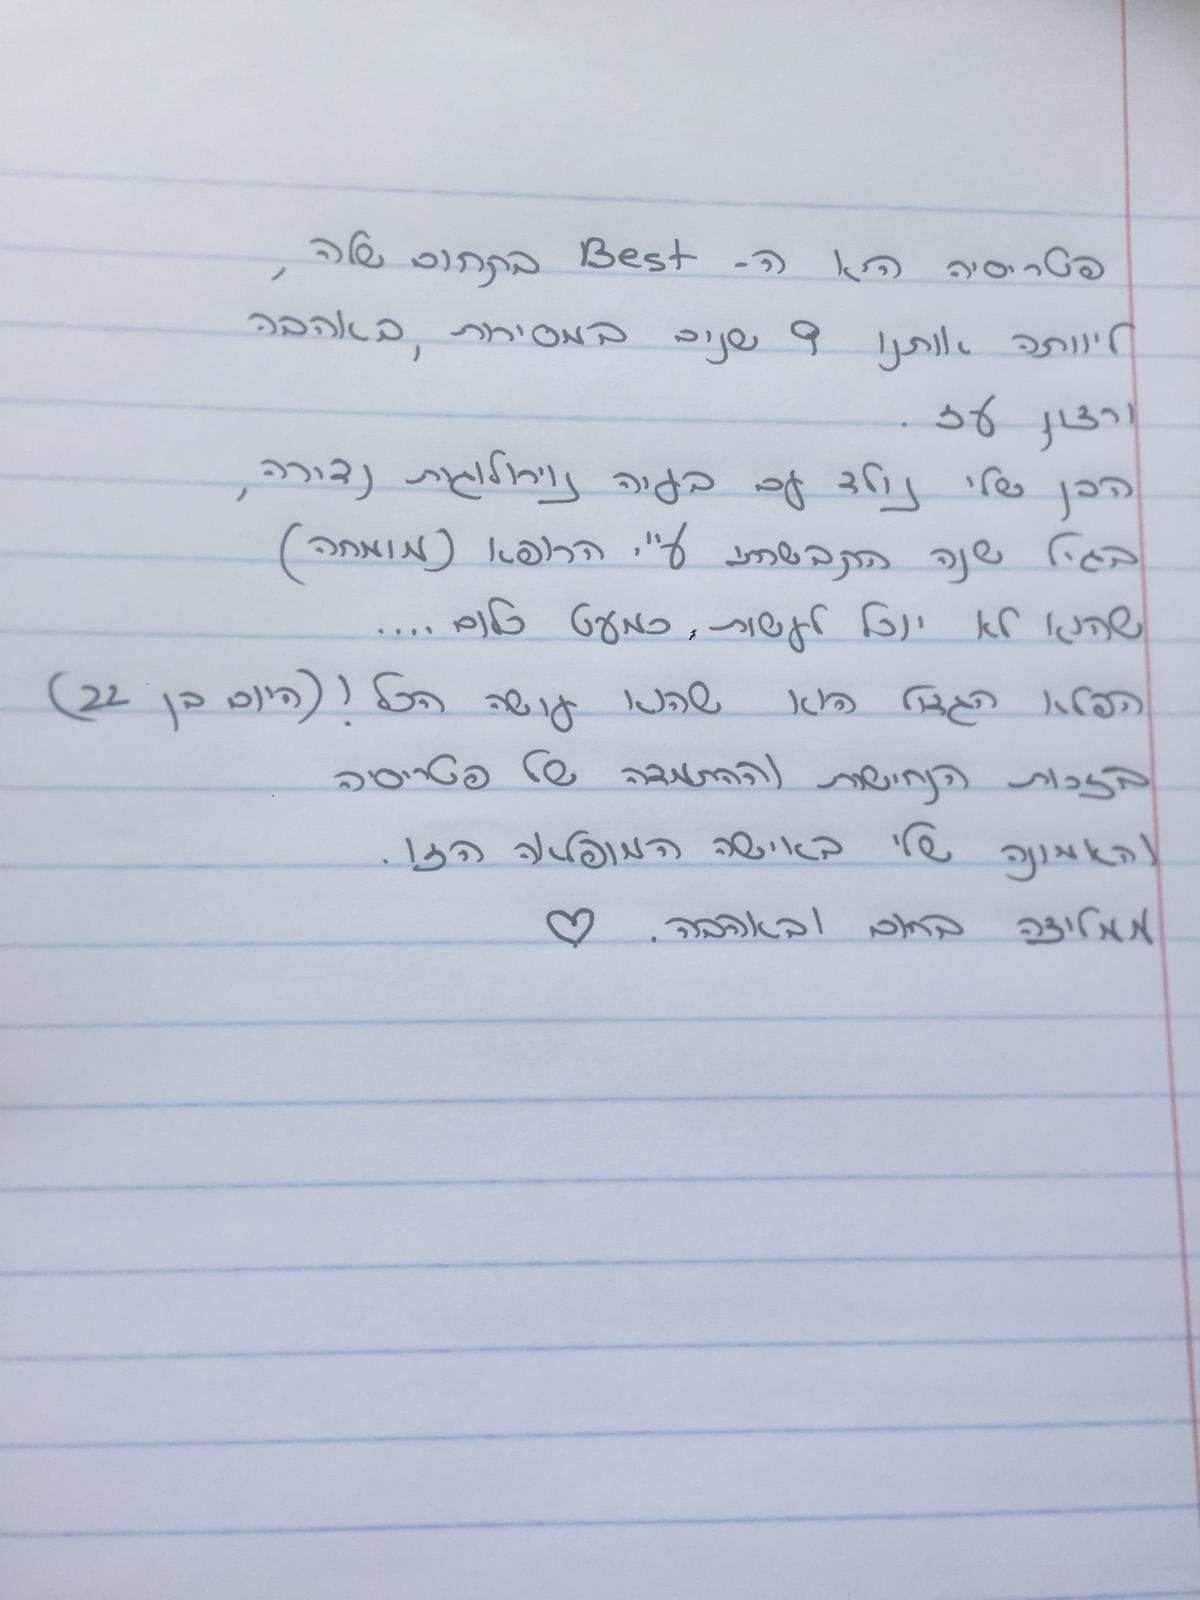 פטריסיה היא ה- Best בתחום שלה,
ליוותה אותנו 9 שנים במסירות, באהבה
ורצון עז.
הבן שלי נולד עם בעיה נוירולוגית נדירה,
בגיל שנה התבשרתי ע"י הרופא (מומחה)
שהוא לא יוכל לעשות, כמעט כלום....
הפלא הגדול הוא שהוא עושה הכל! (היום בן 22)
בזכות הנחישות וההתמדה של פטריסיה
והאמונה שלי באישה המופלאה הזו.
ממליצה בחום ובאהבה. ♡